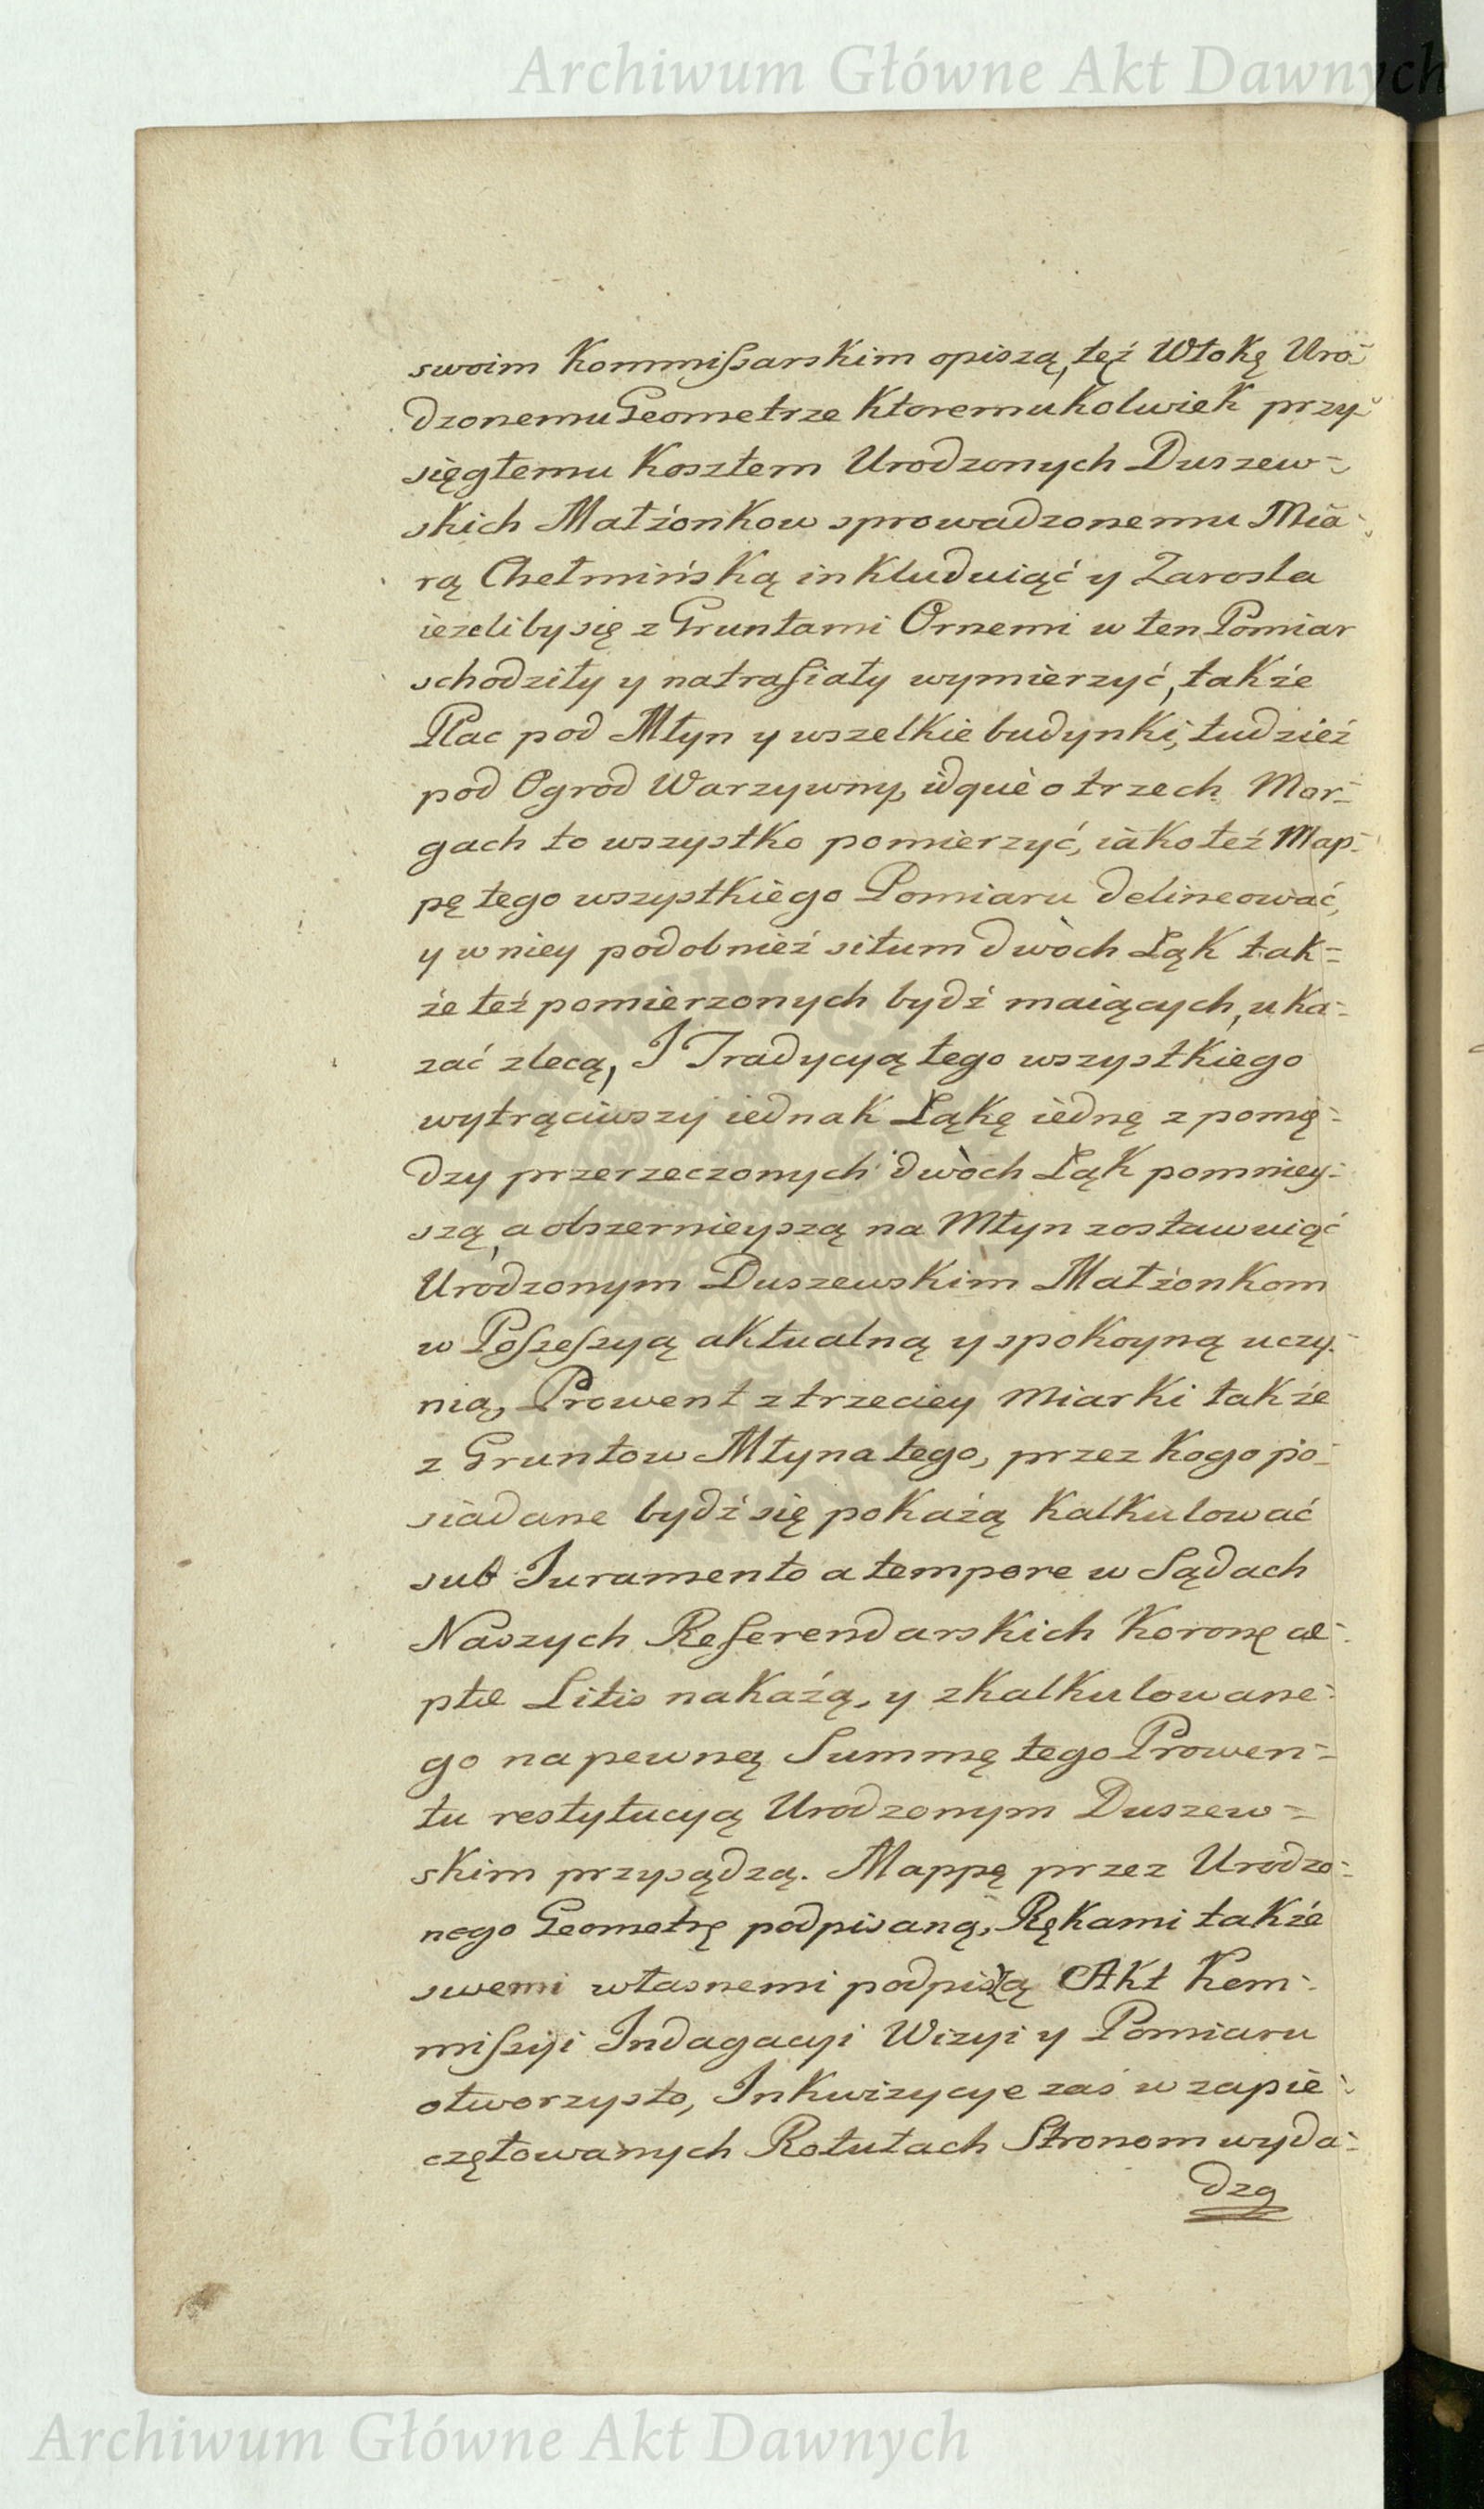 Archiwum Główne Akt Dawnych
swoim Kommißarskim opiszą, tęż Włokę Uro-
dzonemu Geometrze Ktoremukolwiek przy-
sięgłemu Kosztem Urodzonych Duszew-
skich Małżonkow sprowadzonemu Mia-
rą Chełmińską inkluduiąć y Zarosla
ieżeliby się z Gruntami Ornemi w ten Pomiar
schodziły y natrafiały wymierzyć, także
Plac pod Młyn y wszelkie budynki, tudzież
pod Ogrod Warzywny, idque o trzech Mor-
gach to wszystko pomierzyć, iako też Map-
pę tego wszystkiego Pomiaru delineować,
y w niey podobnież situm dwòch Łąk tak-
że też pomierzonych bydź maiących, uka-
zać zlecą, I Tradycyą tego wszystkiego
wytrąciwszy iednak Łąkę iednę z pomię-
dzy przerzeczonych dwòch Łąk pomniey-
szą, a obszernieyszą na Młyn zostawuiąć
Urodzonym Duszewskim Małżonkom
w Poſseſsyą aktualną y spokoyną uczy-
nią, Prowent z trzeciey miarki także
z Gruntow Młyna tego, przez kogo po-
siadane bydź się pokażą kalkulować
sub Juramento a tempore w Sądach
Naszych Referendarskich Koronę cæ-
ptæ Litis nakażą, y zkalkulowane-
go na pewną Summę tego Prowen-
tu restytucyą Urodzonym Duszew-
skim przysądzą. Mappę przez Urodzo-
nego Geometrę podpisaną, Rękami także
swemi własnemi podpiszą Akt Kom-
miſsyi Indagacyi Wizyi y Pomiaru
otworzysto, Inkwizycye zaś w zapie-
czętowanych Rotułach Stronom wyda-
dzą
Archiwum Główne Akt Dawnych